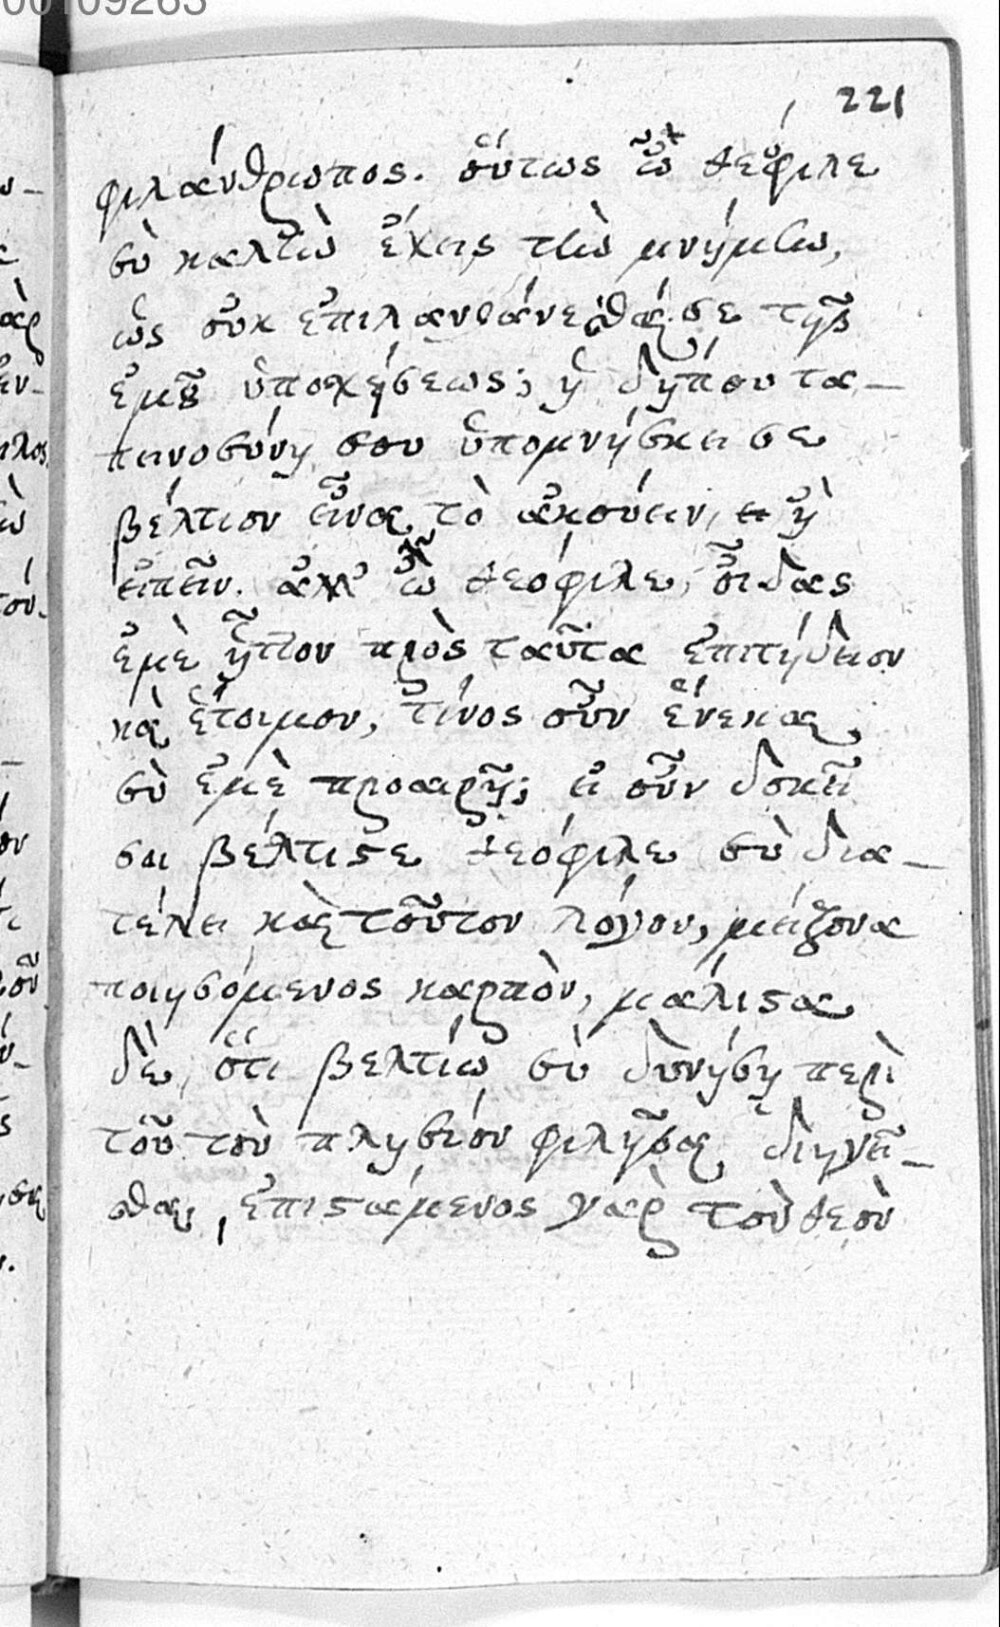 00109263
221
φιλάνθρωπος. οὕτως ὦ θεόφιλε
σὺ καλτὼ ἔχεις τὼ μνήμω,
ὡς οὐκ ἐπιλανθάνεσθαί σε τῆς
ἐμῆς ὑποχήσεως; ἡ δήπου τα-
πεινοσύνη σου ὑπομνήσκει σε
βέλτιον εἶναι τὸ ἀκούειν, ἢ
εἰπεῖν. ἀλλ' ὦ θεόφιλε, οἶδας
ἐμὲ ἧττον πρὸς ταῦτα ἐπιτήδειον
καὶ ἕτοιμον, τίνος οὖν ἕνεκα
σὺ ἐμὲ προαιρῇ; εἰ οὖν δοκεῖ
σοι βέλτιστε θεόφιλε σὺ δια-
τέλει καὶ τοῦτον λόγον, μείζονα
ποιησόμενος καρπὸν, μάλιστα
δὲ, ὅτι βελτίω σὺ δυνήσῃ περὶ
τοῦ τὸν πλησίον φιλῆσαι διηγεῖ-
σθαι, ἐπιστάμενος γὰρ τοῦ θεοῦ